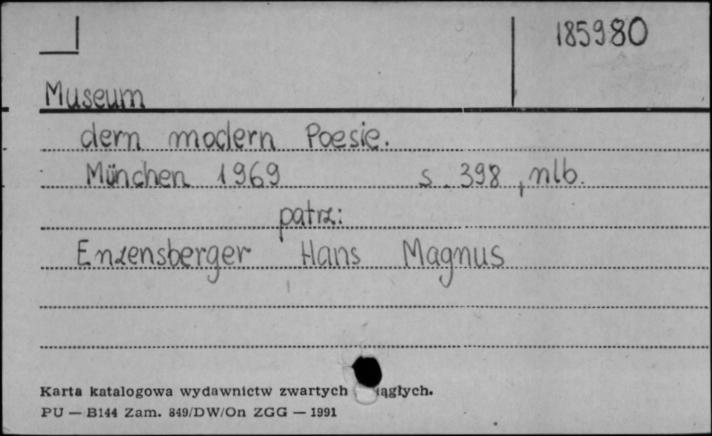 185980
Museum
dern modern Poesie.
München 1969 s. 398, nlb.
patrz:
Enzensberger Hans Magnus
Karta katalogowa wydawnictw zwartych
PU — B144 Zam. 849/DW/On ZGG — 1991